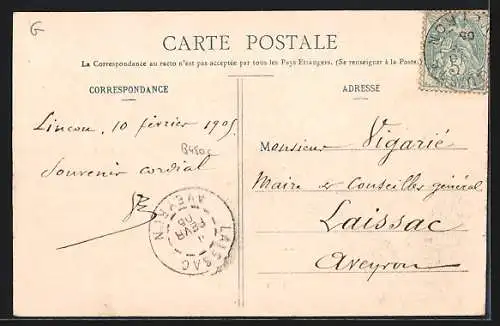 G
CARTE POSTALE
La Correspondance au recto n'est pas acceptée par tous les Pays Etrangers. (Se renseigner à la Poste.)
CORRESPONDANCE
ADRESSE
Lincou, 10 février 1905
Souvenir cordial
Monsieur Vigarié
Maire & Conseiller général
Laissac
Aveyron
LAISSAC
11
FEVR
05
AVEYRON